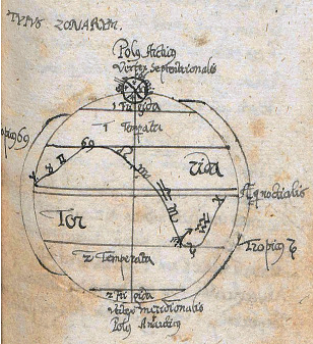 TYPUS ZONARUM.
Polus Arcticus
Vertex Septentrionalis
1 Frigida
1 Temperata
Tor rida
Æqnoctialis
Tropicus ♑
2 Temperata
2 Frigida
Vertex meridionalis
Polus Antarcticus